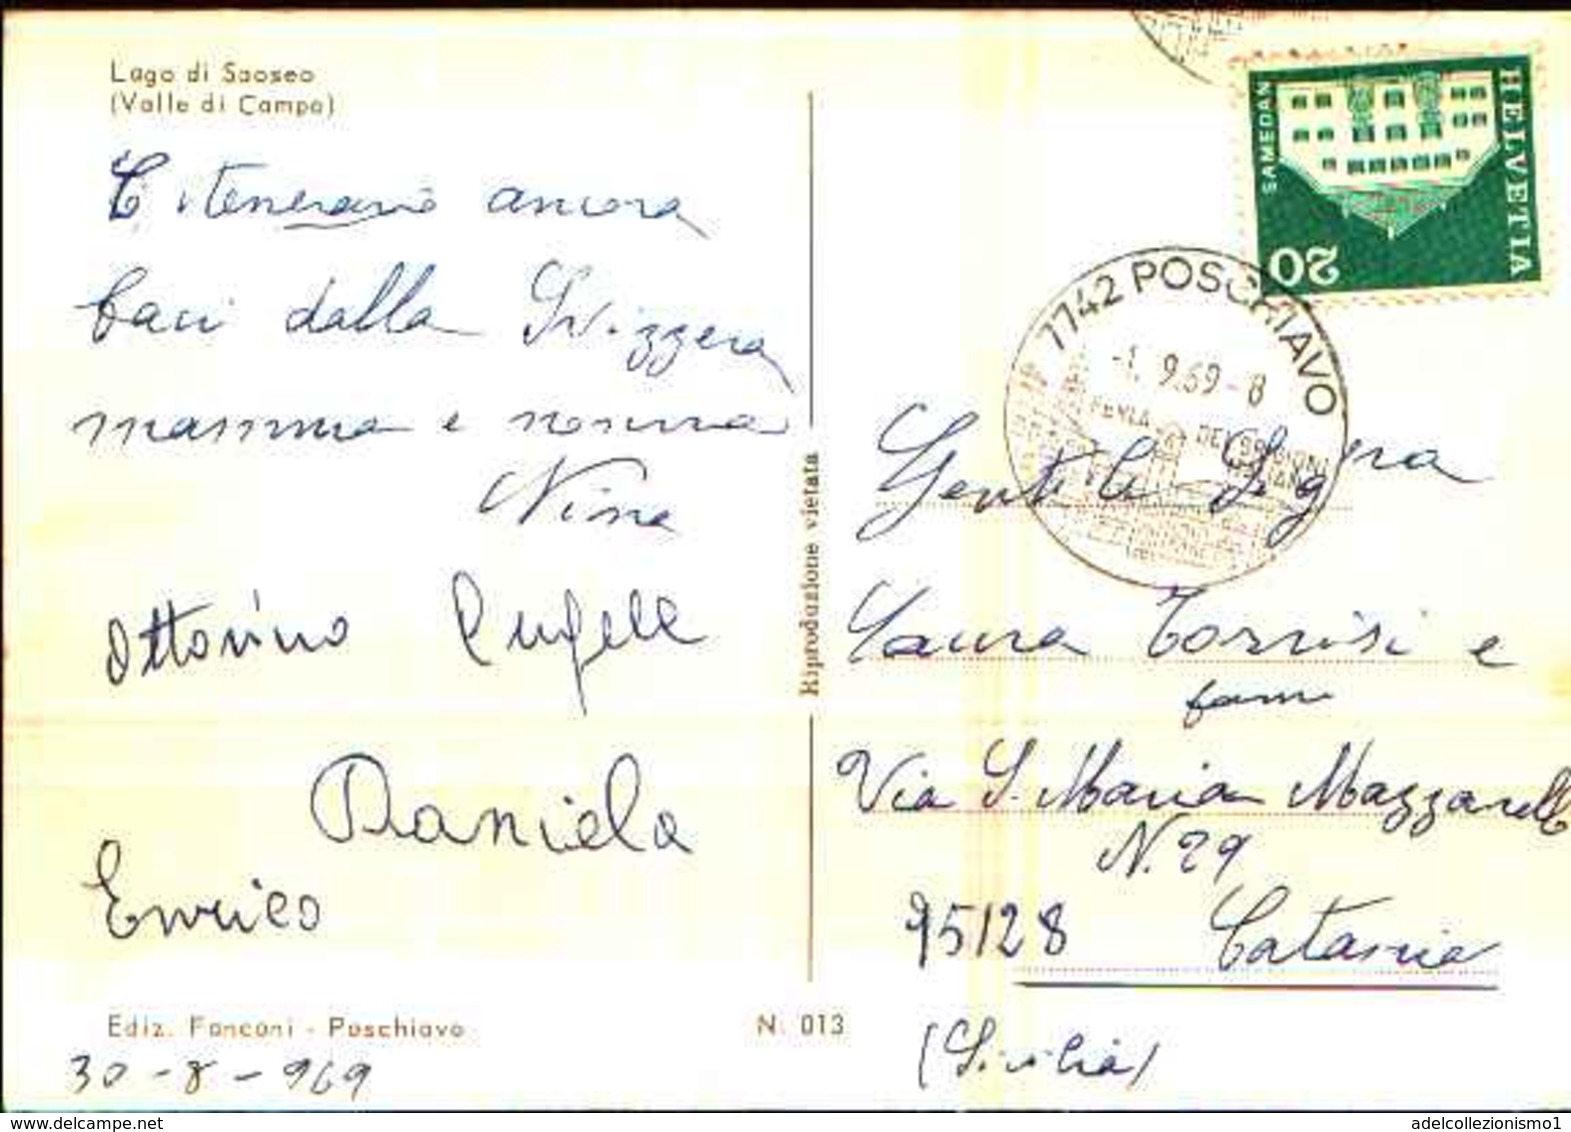 Lago di Saoseo
(Valle di Campo)
ancora
baci dalla Svizzera
mamma e nonna
Nina
Ottorino
Daniela
Enrico
Ediz. Fanconi - Poschiavo
N. 013
30 - 8 - 969
Riproduzione vietata
HELVETIA
SAMEDAN
20
7742 POSCHIAVO
-1. 9.69-8
PERLA DEI GRIGIONI
Gentile Sig.na
Laura Torrisi e
fam
Via S. Maria Mazzarello
N. 29
95128 Catania
(Sicilia)
adelcollezionismo1
www.delcampe.net